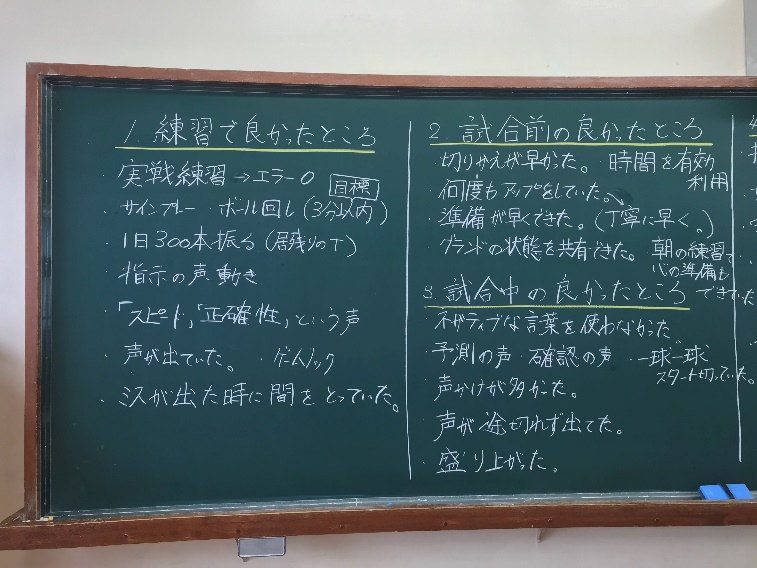 1. 練習で良かったところ
・実戦練習→エラー0 目標
・サインプレー ・ボール回し(3分以内)
・1日300本振る(居残りのT)
・指示の声、動き
・「スピード」、「正確性」という声
・声が出ていた。 ・ゲームノック
・ミスが出た時に間をとっていた。
2. 試合前の良かったところ
・切りかえが早かった。 ・時間を有効利用
・何度もアップをしていた。
・準備が早くできた。(丁寧に早く。)
・グランドの状態を共有できた。 朝の練習で、心の準備もできていた
3. 試合中の良かったところ
・ネガティブな言葉を使わなかった
・予測の声 ・確認の声 ・一球一球スタート切っていた。
・声かけが多かった。
・声が途切れず出てた。
・盛り上がった。